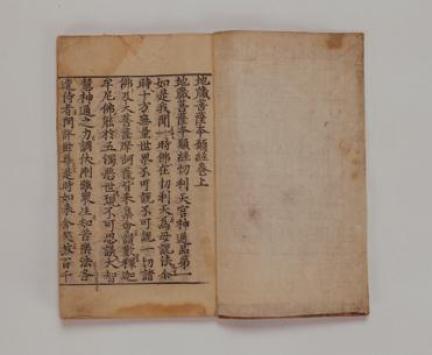 地藏菩薩夲願經卷上
地藏菩薩夲願經忉利天宮神通品第一
如是我聞一時佛在忉利天為母說法尒
時十方無量世界不可說不可說一切諸
佛及大菩薩摩訶薩皆來集會讚歎釋迦
牟尼佛能扵五濁惡世現不可思議大智
慧神通之力調伏剛強衆生知苦樂法各
遣侍者問訊世尊是時如來含笑放百千